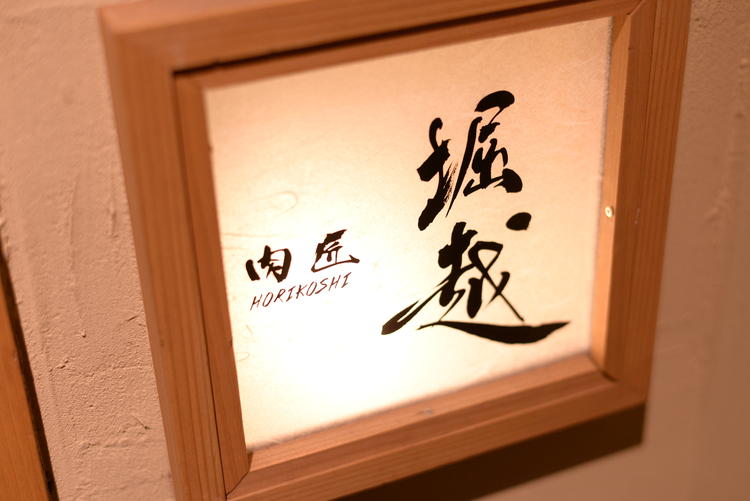 堀越
肉匠
HORIKOSHI